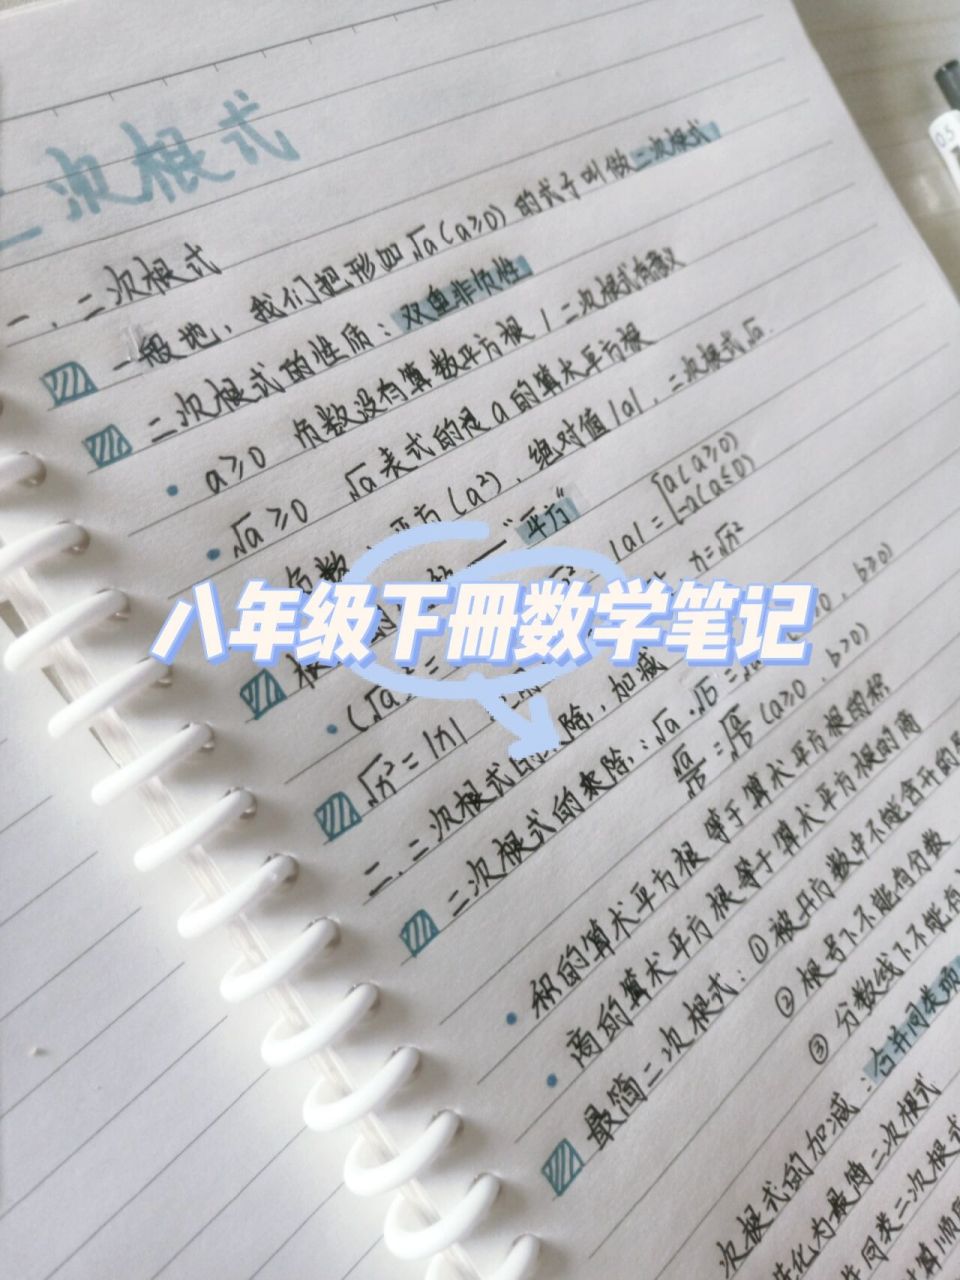 二次根式
一、二次根式
一般地，我们把形如√a(a≥0)的式子叫做二次根式
二次根式的性质：双重非负性
a≥0 负数没有算数平方根 / 二次根式有意义
√a≥0 √a表式的是a的算术平方根
负数 平方(a²)、绝对值|a|、二次根式√a.
"平方"
|a|={a(a≥0) -a(a≤0)
八年级下册数学笔记
(√a
n=√n²
√n²=|n|
二、二次根式的乘除、加减
二次根式的乘除：√a·√b=
b≥0)
√a/√b=√(a/b)(a≥0、b>0)
积的算术平方根等于算术平方根的积
商的算术平方根等于算术平方根的商
最简二次根式：①被开方数中不能含开的
②根号下不能有分数
③分数线下不能有
次根式的加减：合并同类项
化为最简二次根式
同类二次根式
算顺
0.5